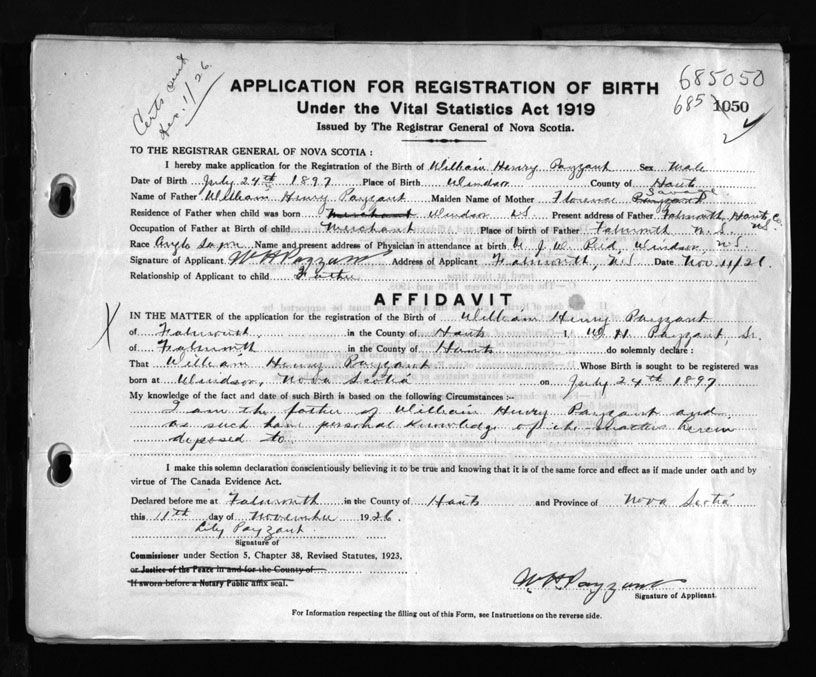 Certs sent
1/26
685050
685
1050
APPLICATION FOR REGISTRATION OF BIRTH
Under the Vital Statistics Act 1919
Issued by The Registrar General of Nova Scotia.
TO THE REGISTRAR GENERAL OF NOVA SCOTIA :
I hereby make application for the Registration of the Birth of William Henry Payzant Sex Male
Date of Birth July 24th 1897 Place of Birth Windsor County of Hants
Name of Father William Henry Payzant Maiden Name of Mother Florence
Residence of Father when child was born Merchant Windsor NS Present address of Father Falmouth, Hants Co NS
Occupation of Father at Birth of child Merchant Place of birth of Father Falmouth N.S.
Race Anglo Saxon Name and present address of Physician in attendance at birth J. W. Reid, Windsor, N.S.
Signature of Applicant W H Payzant Address of Applicant Falmouth, N.S. Date Nov 11/26.
Relationship of Applicant to child Father
AFFIDAVIT
X
IN THE MATTER of the application for the registration of the Birth of William Henry Payzant
of Falmouth in the County of Hants I W H. Payzant Sr.
of Falmouth in the County of Hants do solemnly declare :
That William Henry Payzant Whose Birth is sought to be registered was
born at Windsor, Nova Scotia on July 24th 1897
My knowledge of the fact and date of such Birth is based on the following Circumstances :-
I am the father of William Henry Payzant and
as such have personal knowledge of the matters herein
deposed to
I make this solemn declaration conscientiously believing it to be true and knowing that it is of the same force and effect as if made under oath and by
virtue of The Canada Evidence Act.
Declared before me at Falmouth in the County of Hants and Province of Nova Scotia
this 11th day of November 1926.
Lily Payzant
Signature of
Commissioner under Section 5, Chapter 38, Revised Statutes, 1923,
or Justice of the Peace in and for the County of
If sworn before a Notary Public affix seal.
W H Payzant
Signature of Applicant.
For Information respecting the filling out of this Form, see Instructions on the reverse side.